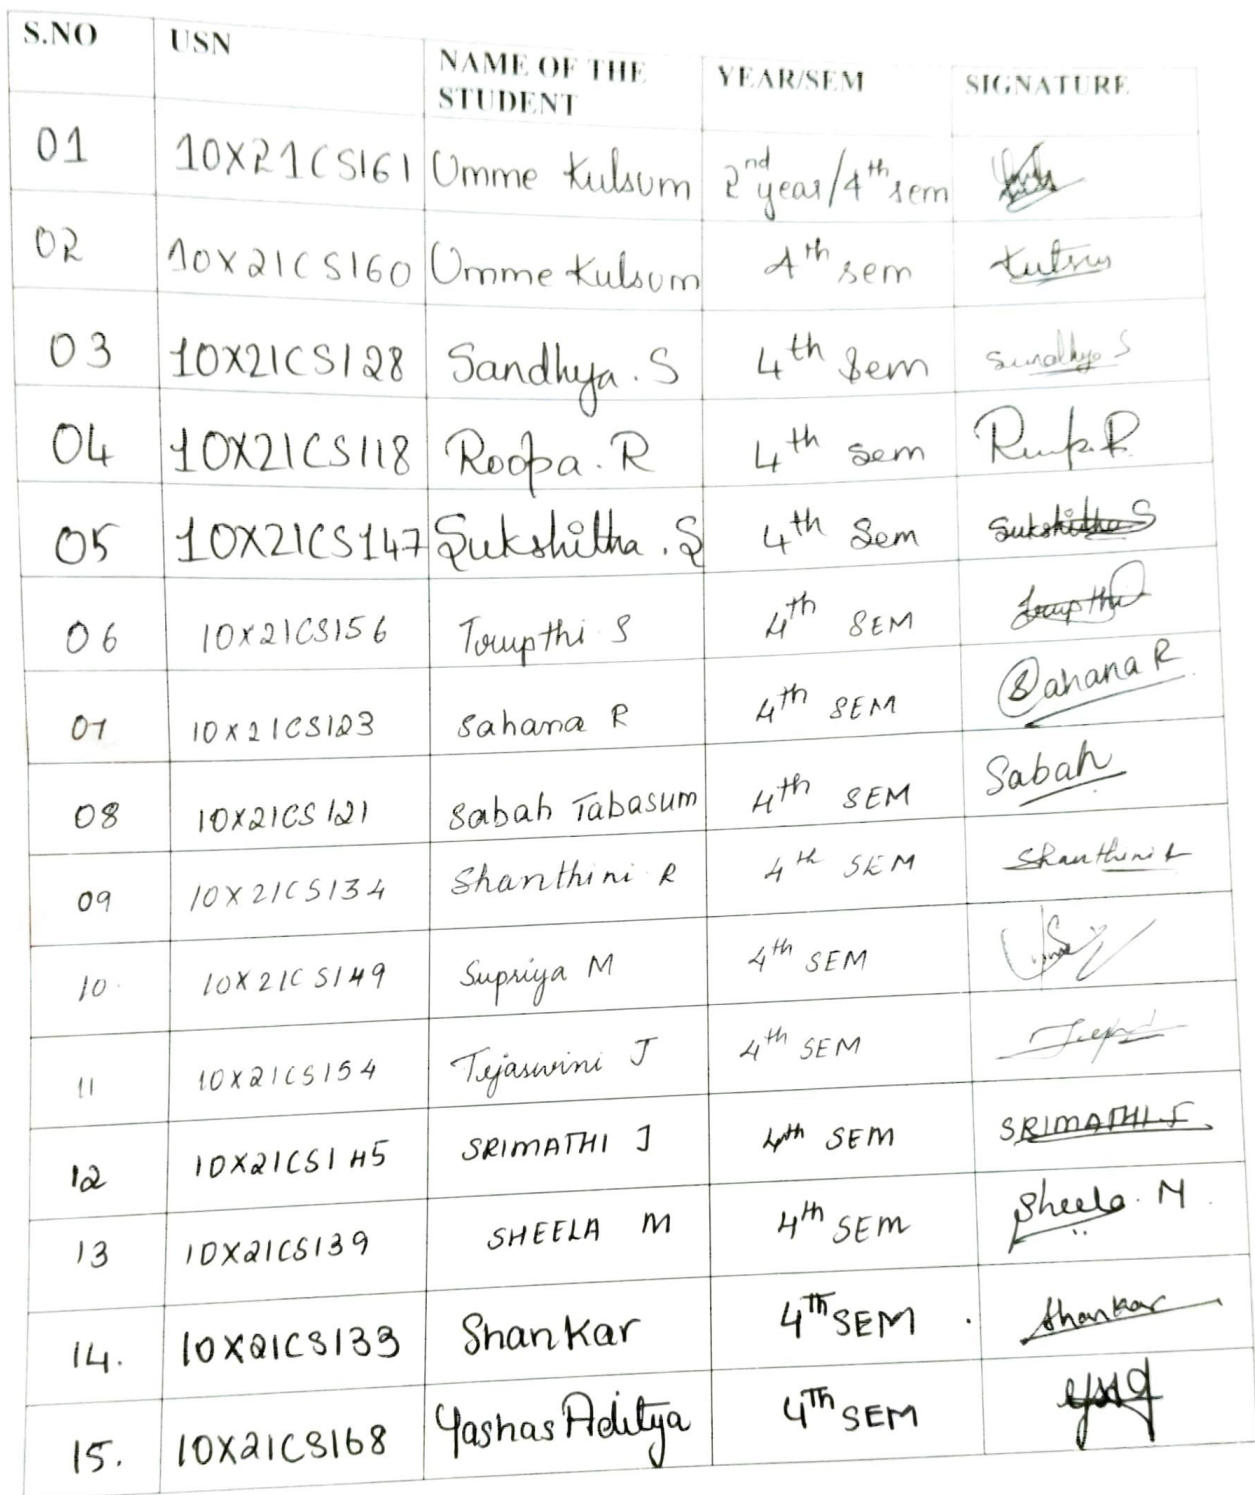 S.NO USN NAME OF THE STUDENT YEAR/SEM SIGNATURE
01 10X21CS161 Umme Kulsum 2nd year/4th sem
02 10X21CS160 Umme Kulsum 4th sem
03 10X21CS128 Sandhya.S 4th Sem Sandhya S
04 10X21CS118 Roopa.R 4th sem
05 10X21CS147 Sukshitha.S 4th Sem Sukshitha S
06 10X21CS156 Trupthi S 4th SEM Trupthi
07 10X21CS123 Sahana R 4th SEM Sahana R
08 10X21CS121 Sabah Tabasum 4th SEM Sabah
09 10X21CS134 Shanthini R 4th SEM Shanthini R
10. 10X21CS149 Supriya M 4th SEM
11 10X21CS154 Tejaswini J 4th SEM
12 10X21CS145 SRIMATHI J 4th SEM SRIMATHI.J.
13 10X21CS139 SHEELA M 4th SEM Sheela.M.
14. 10X21CS133 Shankar 4Th SEM . Shankar
15. 10X21CS168 Yashas Aditya 4Th SEM